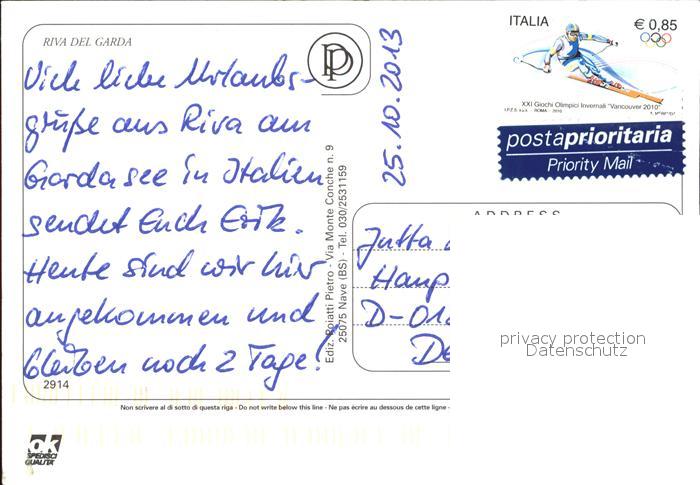 RIVA DEL GARDA
Viele liebe Urlaubs-
grüße aus Riva am
Gardasee in Italien
sendet Euch Erik.
Heute sind wir hier
angekommen und
bleiben noch 2 Tage!
2914
PP
25.10.2013
Ediz. Poiatti Pietro - Via Monte Conche n. 9
25075 Nave (BS) - Tel. 030/2531159
ITALIA € 0,85
XXI Giochi Olimpici Invernali "Vancouver 2010"
I.P.Z.S. S.p.A. - ROMA - 2010
postaprioritaria
Priority Mail
ADDRESS
Jutta
Haup
D-01
De
privacy protection
Datenschutz
Non scrivere al di sotto di questa riga - Do not write below this line - Ne pas écrire au dessous de cette ligne -
OK
SPEDISCI
QUALITÀ